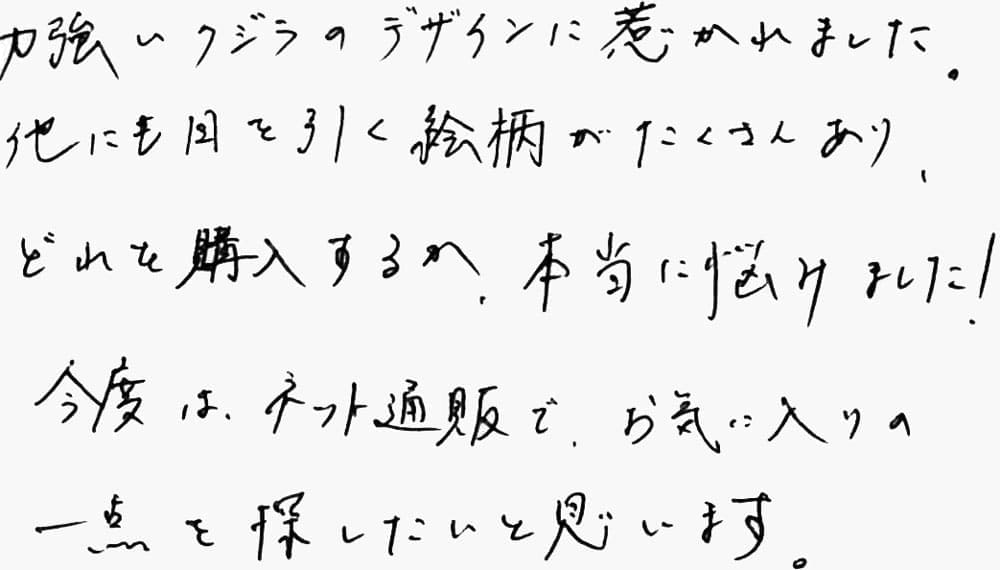 力強いクジラのデザインに惹かれました。
他にも目を引く絵柄がたくさんあり、
どれを購入するか、本当に悩みました!
今度は、ネット通販で、お気に入りの
一点を探したいと思います。